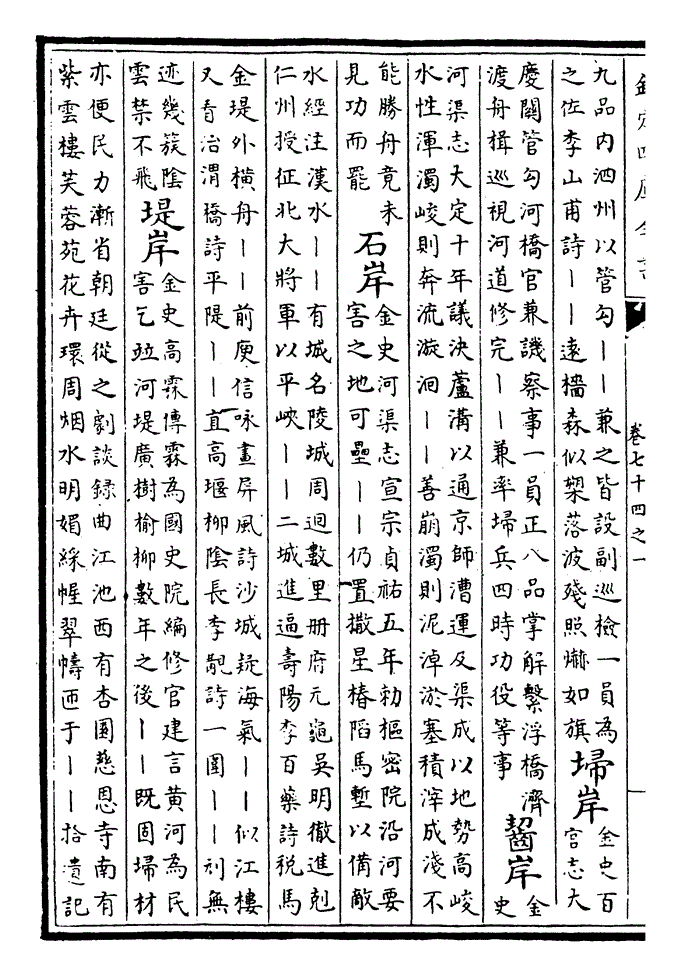 欽定四庫全書
卷七十四之一
九品内泗州以管勾丨丨兼之皆設副巡檢一員為
之佐李山甫詩丨丨遠檣森似槊落波殘照爀如旗
埽岸
金史百
官志大
慶闗管勾河橋官兼譏察事一員正八品掌解繫浮橋濟
渡舟楫巡視河道修完丨丨兼率埽兵四時功役等事
齧岸
金
史
河渠志大定十年議決蘆溝以通京師漕運及渠成以地勢高峻
水性渾濁峻則奔流漩洄丨丨善崩濁則泥淖淤塞積滓成淺不
能勝舟竟未
見功而罷
石岸
金史河渠志宣宗貞祐五年勅樞密院沿河要
害之地可壘丨丨仍置撒星樁䧟馬塹以備敵
水經注漢水丨丨有城名陵城周迴數里册府元龜吳明徹進剋
仁州授征北大將軍以平峽丨丨二城進逼壽陽李百藥詩税馬
金堤外橫舟丨丨前庾信咏畫屏風詩沙城疑海氣丨丨似江樓
又看治渭橋詩平隄丨丨直高堰柳陰長李覯詩一圍丨丨刹無
迹幾簇陰
雲禁不飛
堤岸
金史高霖傳霖為國史院編修官建言黄河為民
害乞竝河堤廣樹榆柳數年之後丨丨既固埽材
亦便民力漸省朝廷從之劇談録曲江池西有杏園慈恩寺南有
紫雲樓芙蓉苑花卉環周烟水明媚綵幄翠幬匝于丨丨拾遺記